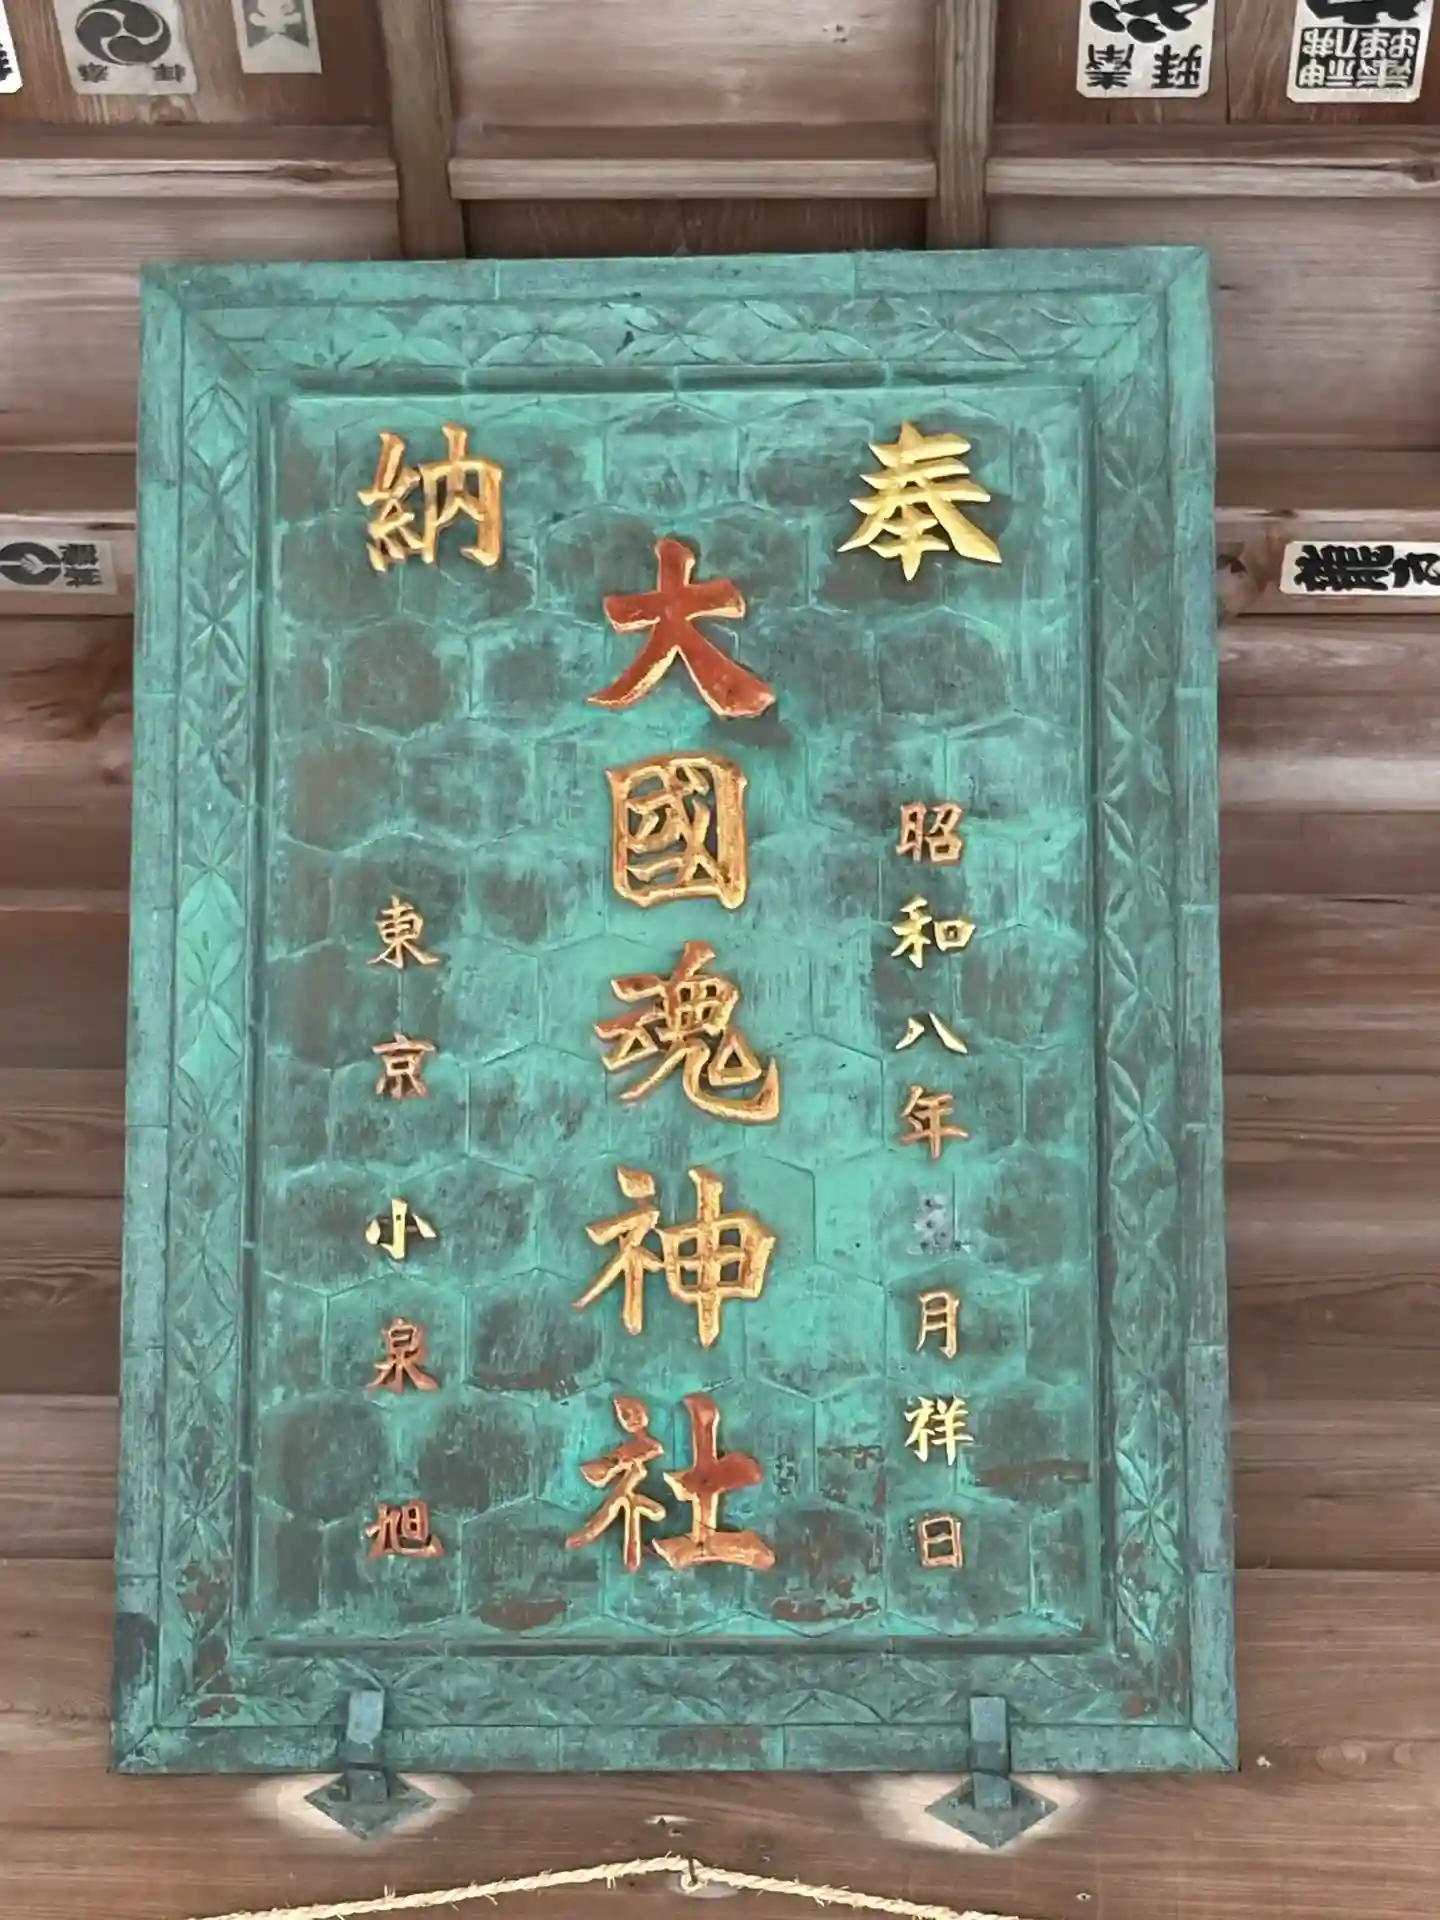 奉納
昭和八年 月祥日
大國魂神社
東京 小泉 旭